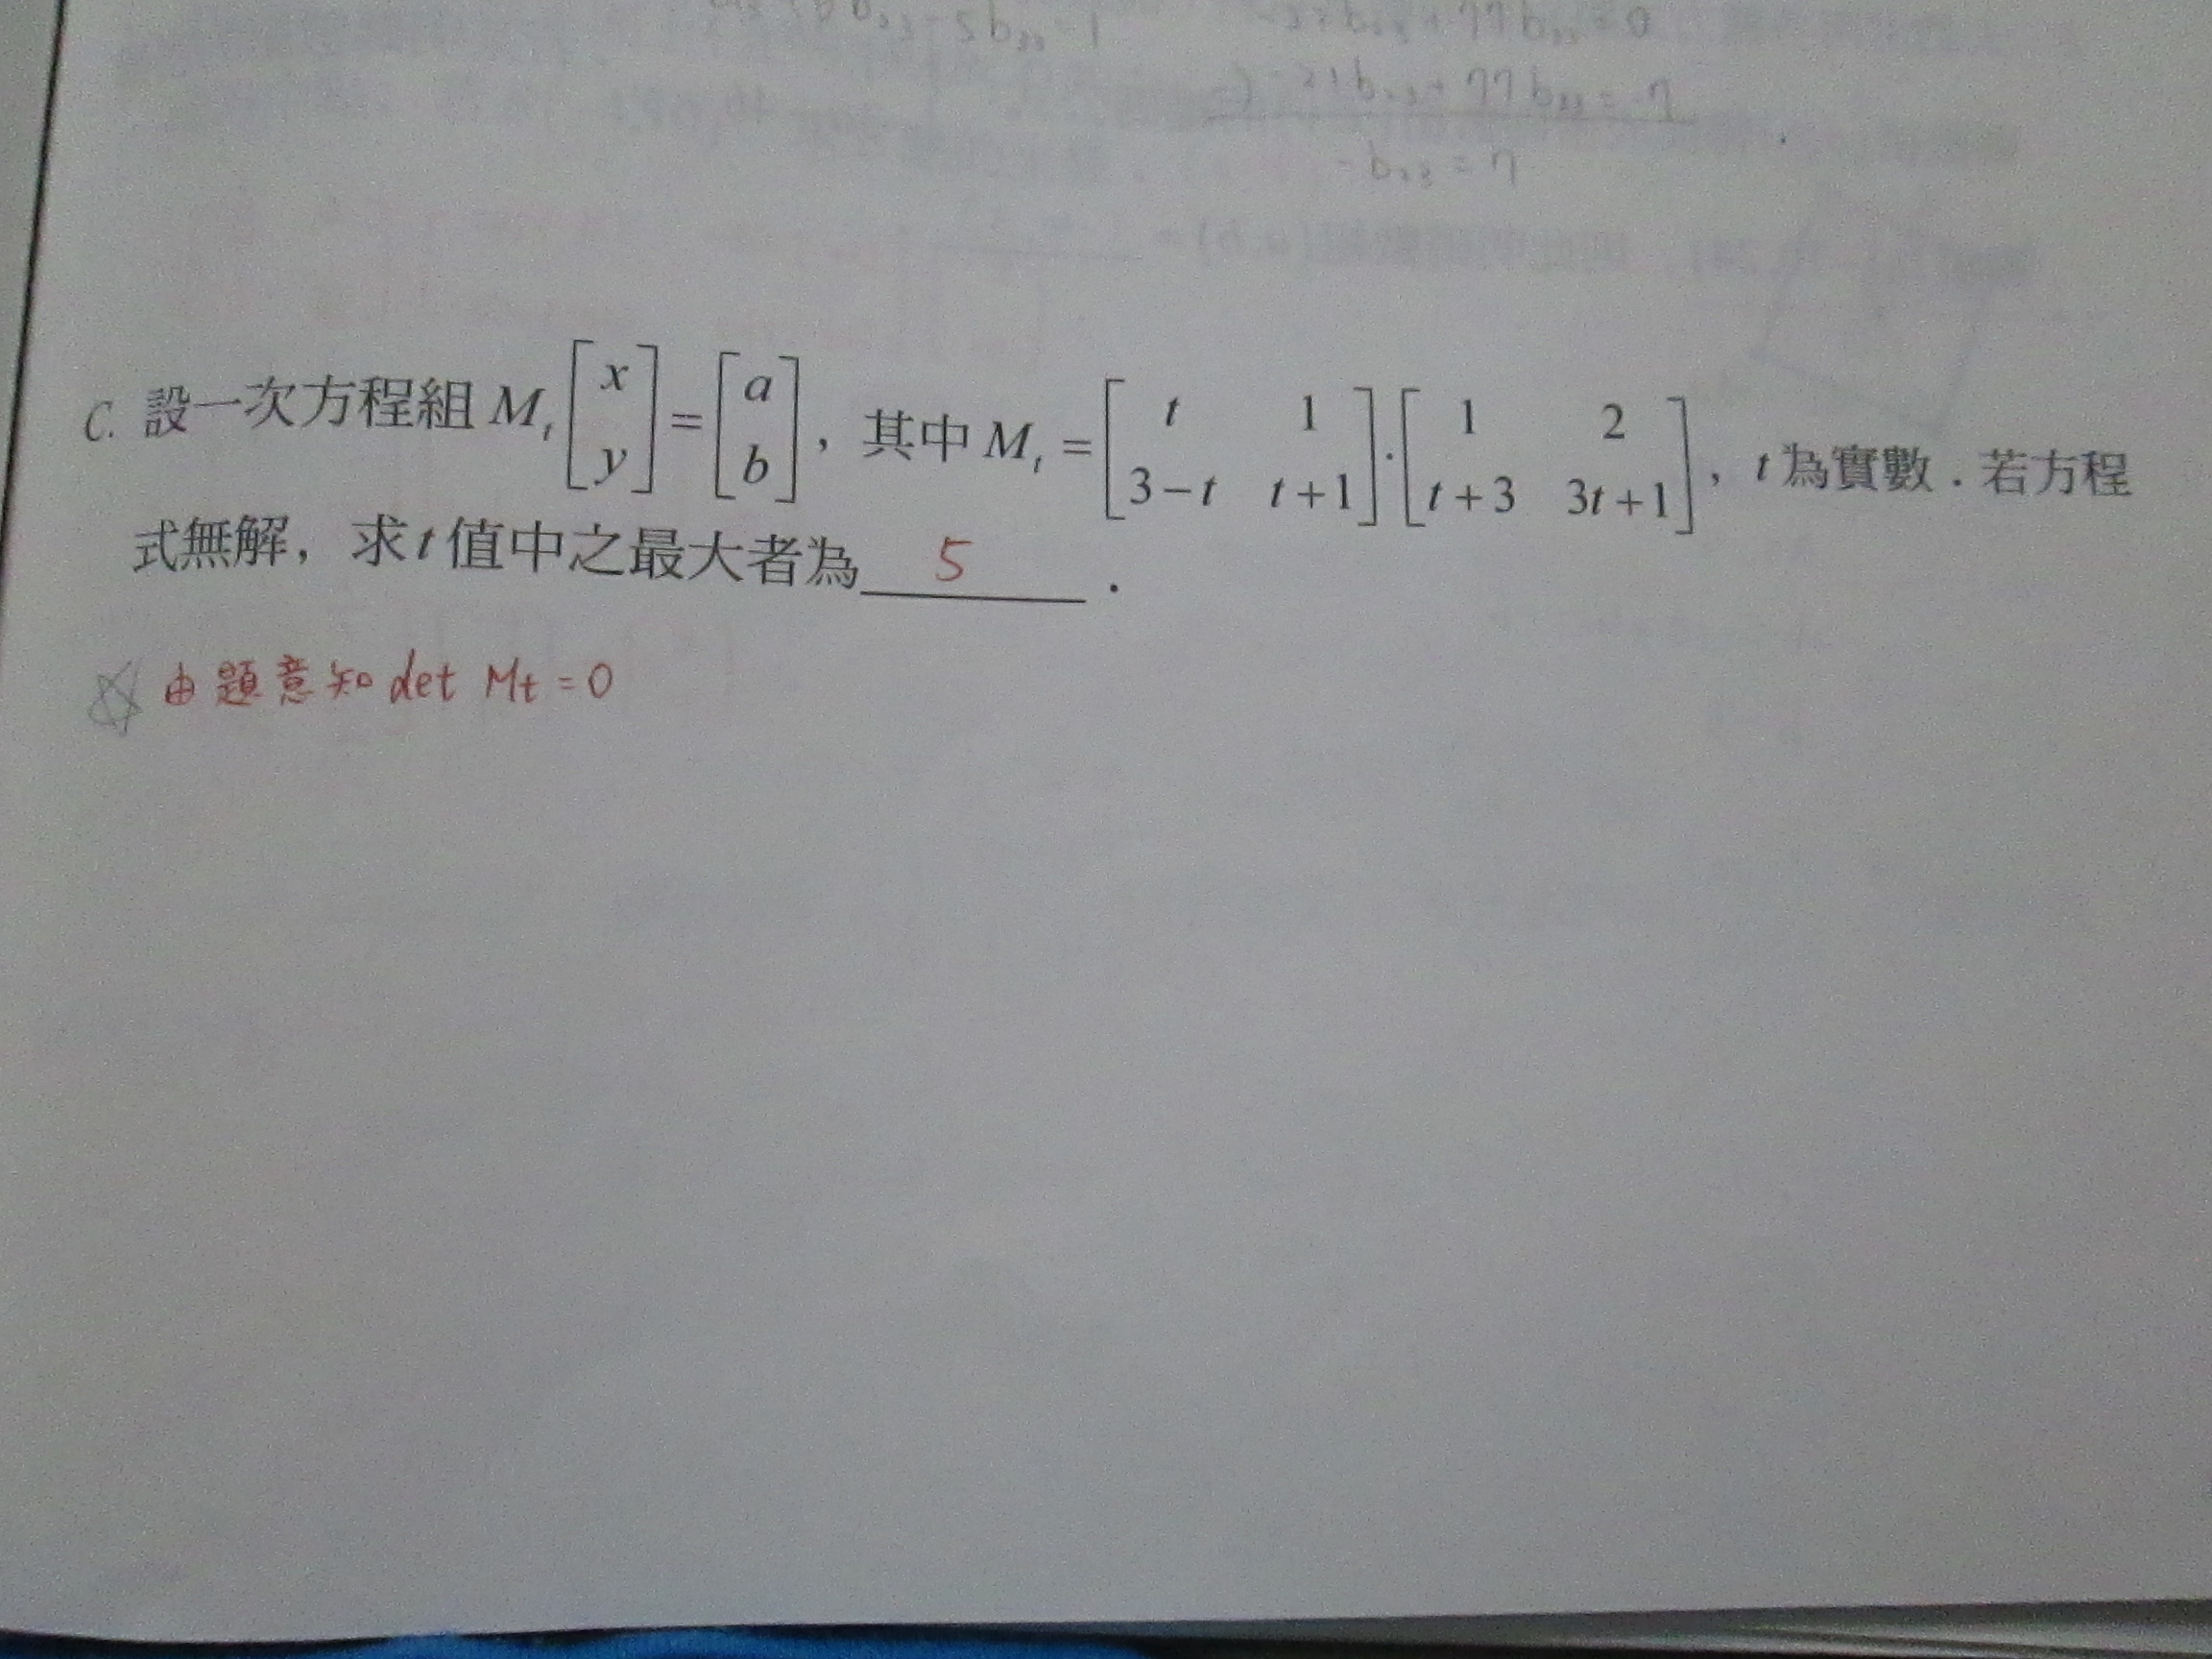 C. 設一次方程組 M_t [x y] = [a b], 其中 M_t = [t 1 3−t t+1]·[1 2 t+3 3t+1], t為實數.若方程
式無解, 求t值中之最大者為 5 .
由題意知 det Mt = 0